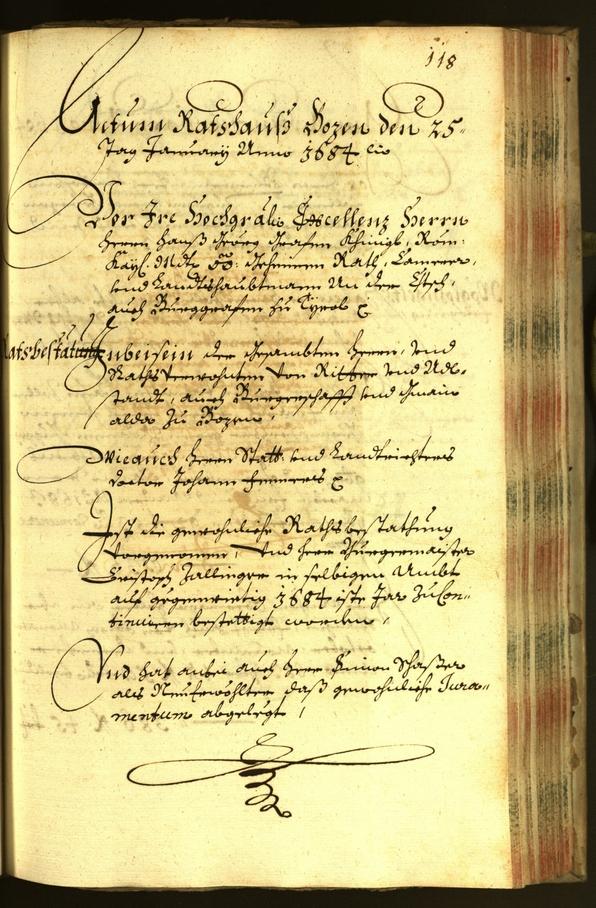 118
Actum Ratshauß Bozen den 25.
Tag January Anno 1684
Vor Ire Hochgräfl. Excellenz Herrn
Herrn Hanß Georg Grafen Khünigl, Röm:
Kayl. Geheimen Rath, Camerer,
und Landtshaubtmann an der Etsch,
auch Burggrafen zu Tyrol
Ratsbestätung
In beisein der gesambten Herrn, und
Rathsverwohnten von Ritter und Adl-
standt, auch Burgerschafft und Gmain
alda zu Bozen,
Wie auch Herrn Statt- und Landtrichters
Doctor Johann
Ist die gewohnliche Rathsbestathung
vorgenomen, und Herr Burgermaister
Christoph Zallinger in selbigen Ambt
auf gegenwertig 1684 iste Jar zu Con-
tinuiren bestettigt worden,
Und hat anbei auch Herr Simon
als Neuerwöhlter daß gewohnliche Jura-
mentum abgelegt,